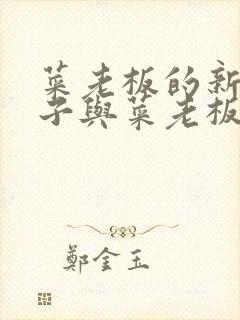 菜老板的新
子與菜老板
鄭金玉